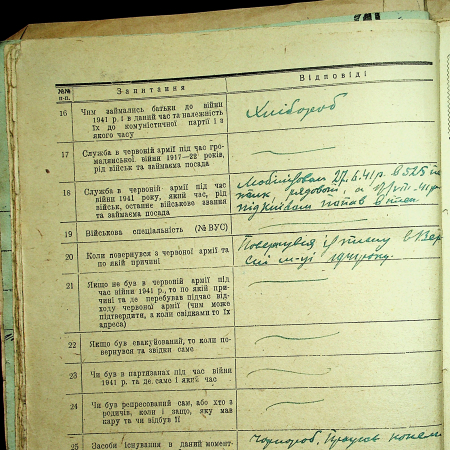 №№ п-п.
Запитання
Відповіді
16 Чим займались батьки до війни
1941 р. і в даний час та належність
їх до комуністичної партії і з
якого часу
Хлібороб
17 Служба в червоній армії під час гро-
мадянської війни 1917—22 років,
рід військ та займаема посада
18 Служба в червоній армії під час
війни 1941 року, який час, рід
військ, останнє військове звання
та займаема посада
Мобілізован 27.6.41р. в 525
рядовой, а
під Києвом попав в плен
19 Військова спеціальність (№ ВУС)
20 Коли повернувся з червоної армії та
по якій причині
Повернувся із плену в
1941 року.
21 Якщо не був в червоній армії під
час війни 1941 р., то по якій при-
чині та де перебував підчас від-
ходу червоної армії (чим може
підтвердити, а коли свідками то їх
адреса)
22 Якщо був евакуйований, то коли по-
вернувся та звідки саме
23 Чи був в партизанах під час війни
1941 р. та де саме і який час
24 Чи був репресований сам, або хто з
родичів, коли і защо, яку мав
кару та чи відбув її
25 Засоби існування в даний момент-